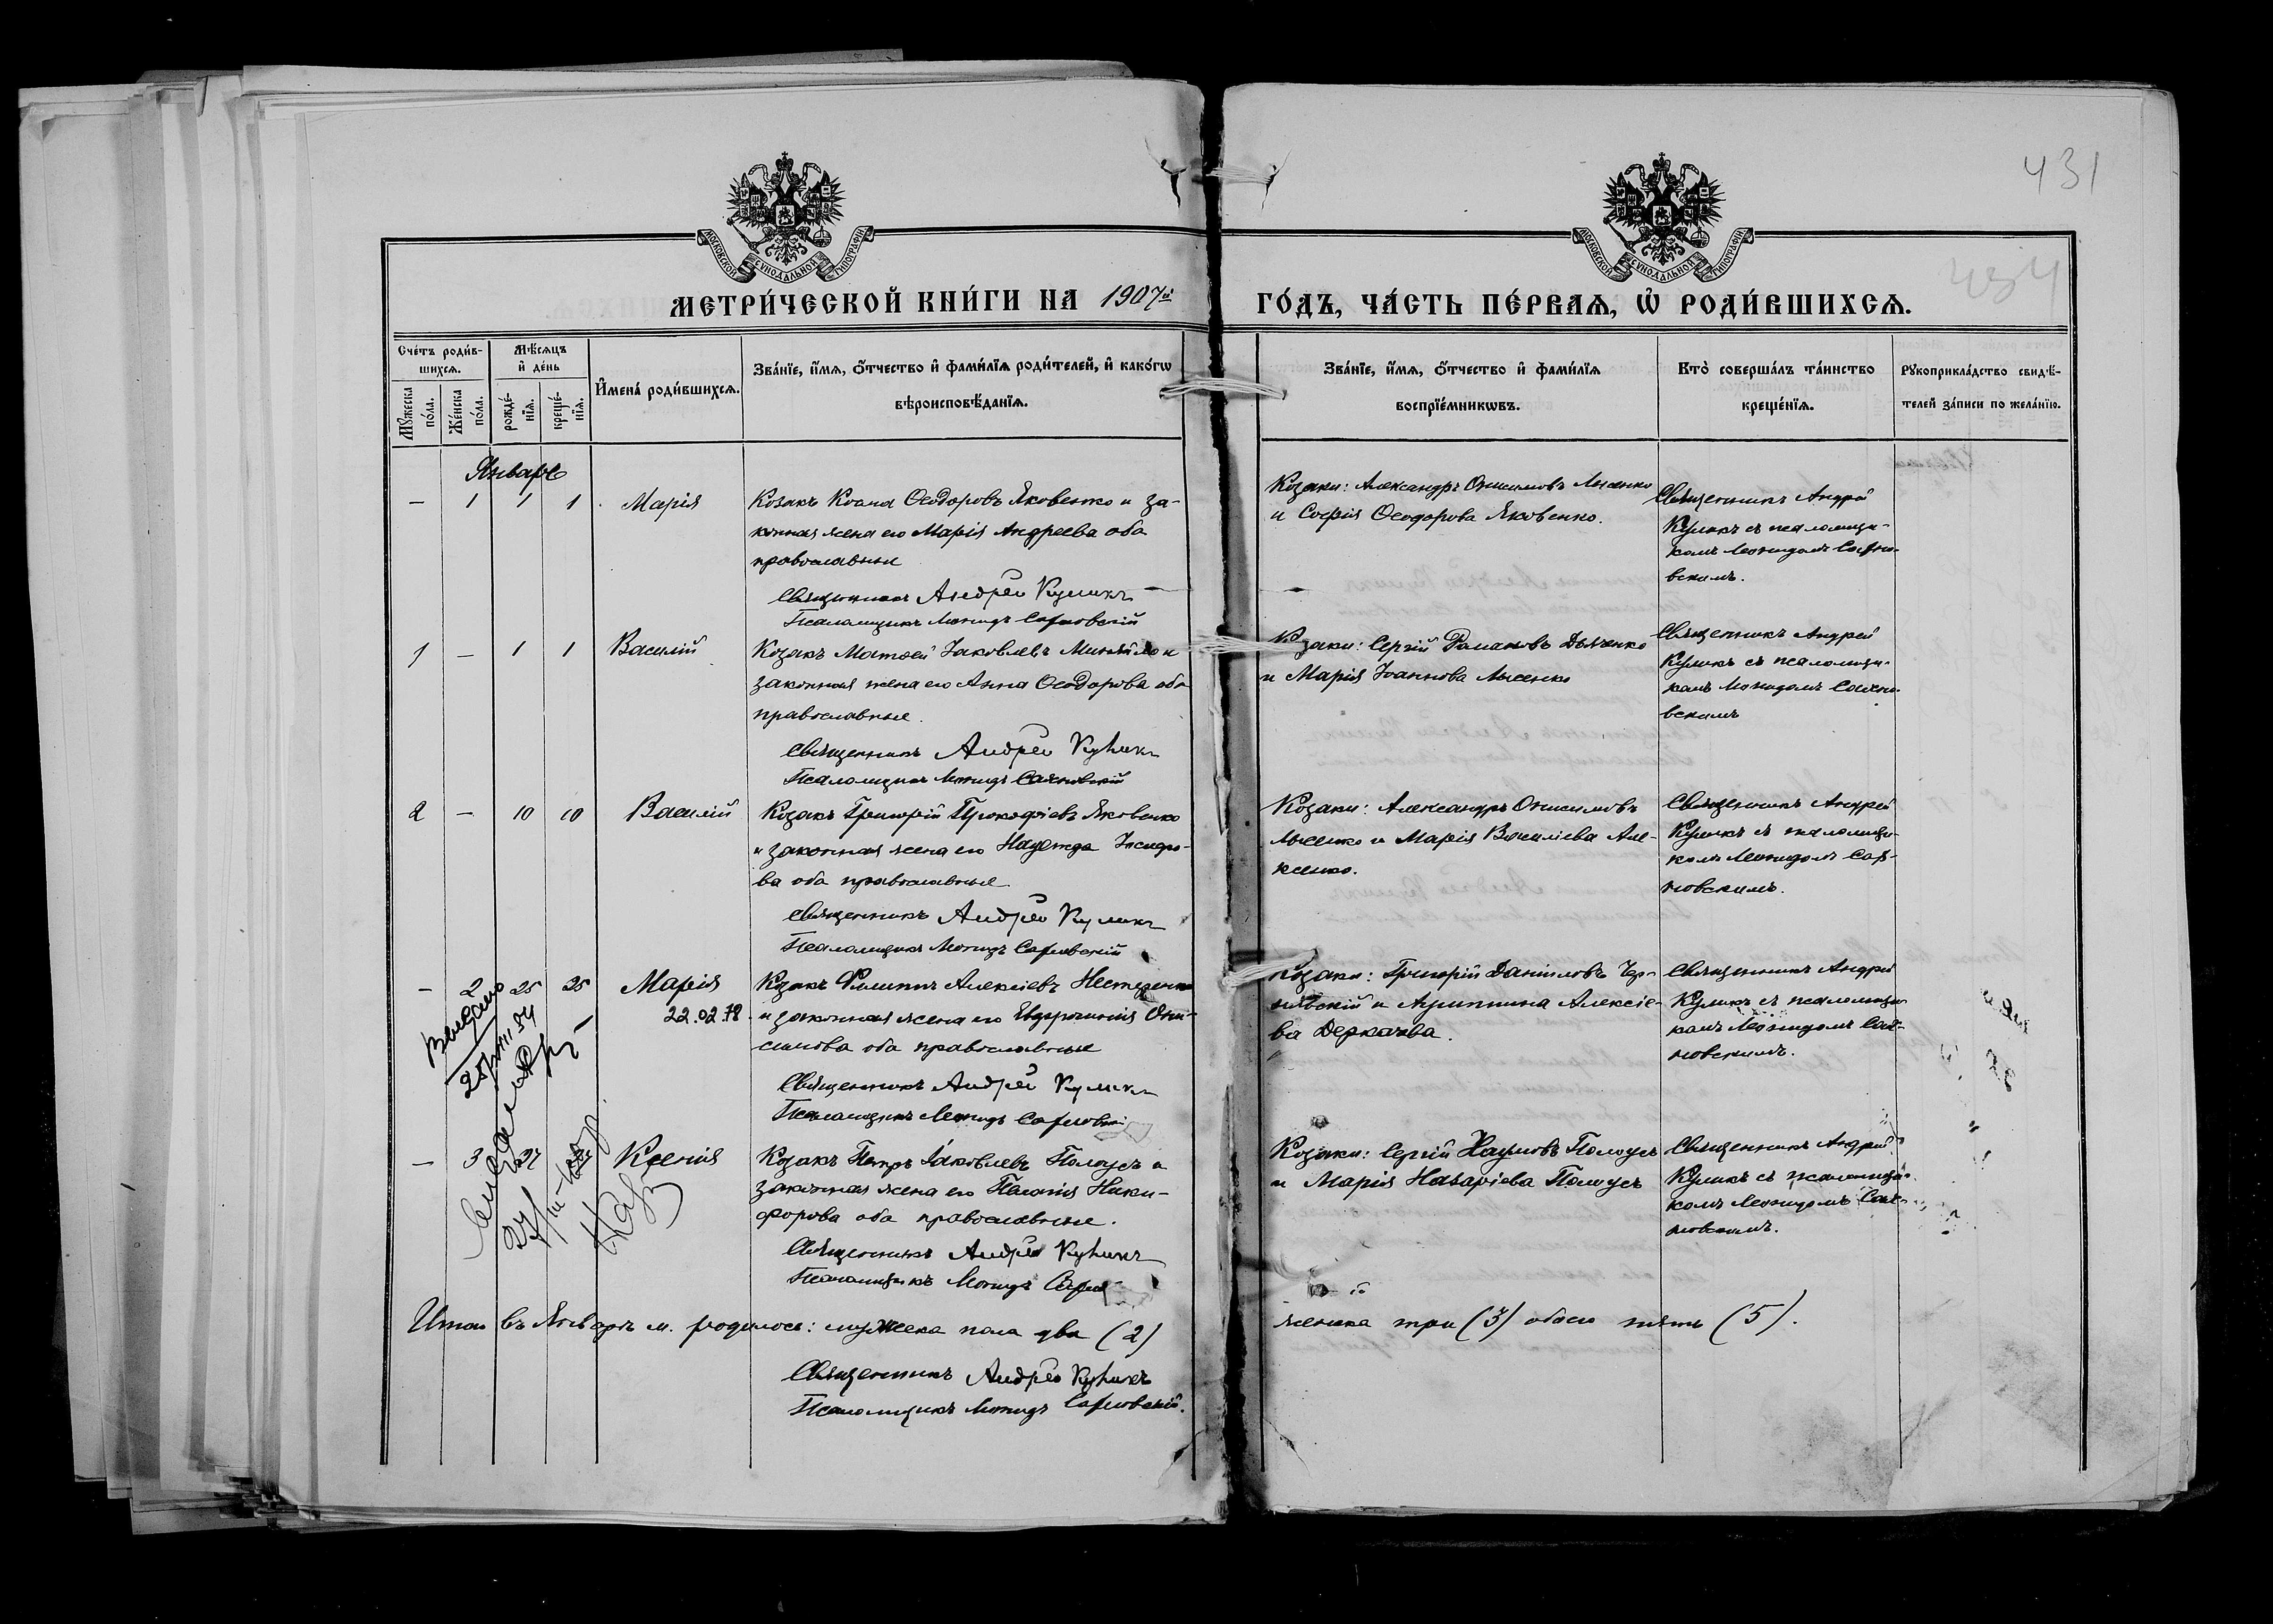 431
434
МОСКОВСКОЙ СѴНОДАЛЬНОЙ ТИПОГРАФІИ
МОСКОВСКОЙ СѴНОДАЛЬНОЙ ТИПОГРАФІИ
МЕТРИ́ЧЕСКОЙ КНИ́ГИ НА 1907й
ГО́ДЪ, ЧА́СТЬ ПЕ́РВАѦ, Ѡ҆ РОДИ́ВШИХСѦ.
Сче́тъ роди́в-
шихсѧ.
Мꙋ́жеска по́ла.
Же́нска по́ла.
Мѣ́сѧцъ и҆ де́нь
рожде́-нїѧ.
креще́-нїѧ.
И҆мена̀ роди́вшихсѧ.
Зва́нїе, и҆́мѧ, ѻ҆́тчество и҆ фами́лїѧ роди́телей, и҆ како́гѡ
вѣроисповѣ́данїѧ.
Зва́нїе, и҆́мѧ, ѻ҆́тчество и҆ фами́лїѧ
воспрїе́мникѡвъ.
Кто̀ соверша́лъ та́инство
креще́нїѧ.
Рꙋкоприкла́дство свидѣ́-
телей за́писи по жела́нїю.
Январь
— 1 1 1 Марія
Козакъ Косма Ѳеодоровъ Яковенко и за-
конная жена его Марія Андреева оба
православные
Священникъ Андрей Куликъ
Псаломщикъ Леонидъ
Козаки: Александръ Онисимовъ Лысенко
и Софія Ѳеодорова Яковенко.
Священникъ Андрей
Куликъ съ псаломщи-
комъ Леонидомъ
вскимъ.
1 — 1 1 Василій
Козакъ Матѳей Іаковлевъ и
законная жена его Анна Ѳеодорова оба
православные.
Священникъ Андрей Куликъ
Псаломщикъ Леонидъ
Козаки: Сергій Романовъ Дьяченко
и Марія Іоаннова Лысенко
Священникъ Андрей
Куликъ съ псаломщи-
комъ Леонидомъ
вскимъ
2 — 10 10 Василій
Козакъ Григорій Прокофіевъ Яковенко
и законная жена его Надежда Исидо-
ва оба православные
Священникъ Андрей Куликъ
Псаломщикъ Леонидъ
Козаки: Александръ Онисимовъ
Лысенко и Марія Василіева Але-
ксенко.
Священникъ Андрей
Куликъ съ псаломщи-
комъ Леонидомъ
новскимъ.
— 2 25 25 Марія
22.02.78
Козакъ Филиппъ Алексіевъ Нестеренко
и законная жена его Евфросинія Они-
симова оба православные
Священникъ Андрей Куликъ
Псаломщикъ Леонидъ
Козаки: Григорій Даніиловъ Чер-
и Агриппина Алексіе-
ва Деркачева.
Священникъ Андрей
Куликъ съ псаломщи-
комъ Леонидомъ
новскимъ.
— 3 Ксенія
Козакъ Петръ Іаковлевъ Полоусъ и
законная жена его Пелагія Ники-
форова оба православные.
Священникъ Андрей Куликъ
Псаломщикъ Леонидъ
Козаки: Сергій Наумовъ Полоусъ
и Марія Назаріева Полоусъ
Священникъ Андрей
Куликъ съ псаломщи-
комъ Леонидомъ
новскимъ.
Итого въ Январѣ м. родилось: мужеска пола два (2)
женска три (3) обоего пять (5).
Священникъ Андрей Куликъ
Псаломщикъ Леонидъ